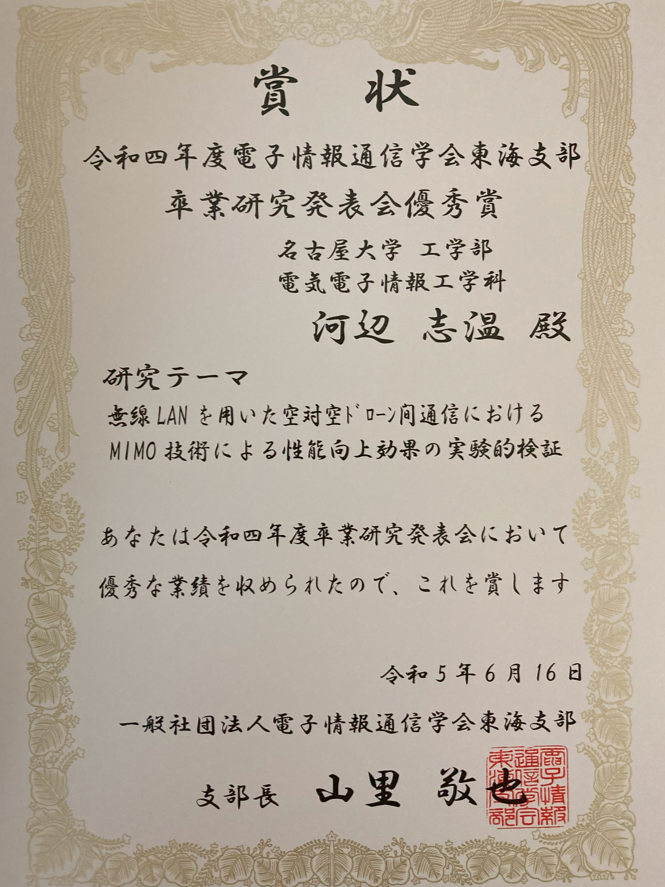 賞 状
令和四年度電子情報通信学会東海支部
卒業研究発表会優秀賞
名古屋大学 工学部
電気電子情報工学科
河辺 志温 殿
研究テーマ
無線LANを用いた空対空ﾄﾞﾛｰﾝ間通信における
MIMO技術による性能向上効果の実験的検証
あなたは令和四年度卒業研究発表会において
優秀な業績を収められたので、これを賞します
令和5年6月16日
一般社団法人電子情報通信学会東海支部
支部長 山里 敬也
電子情報
通信学会
東海支部